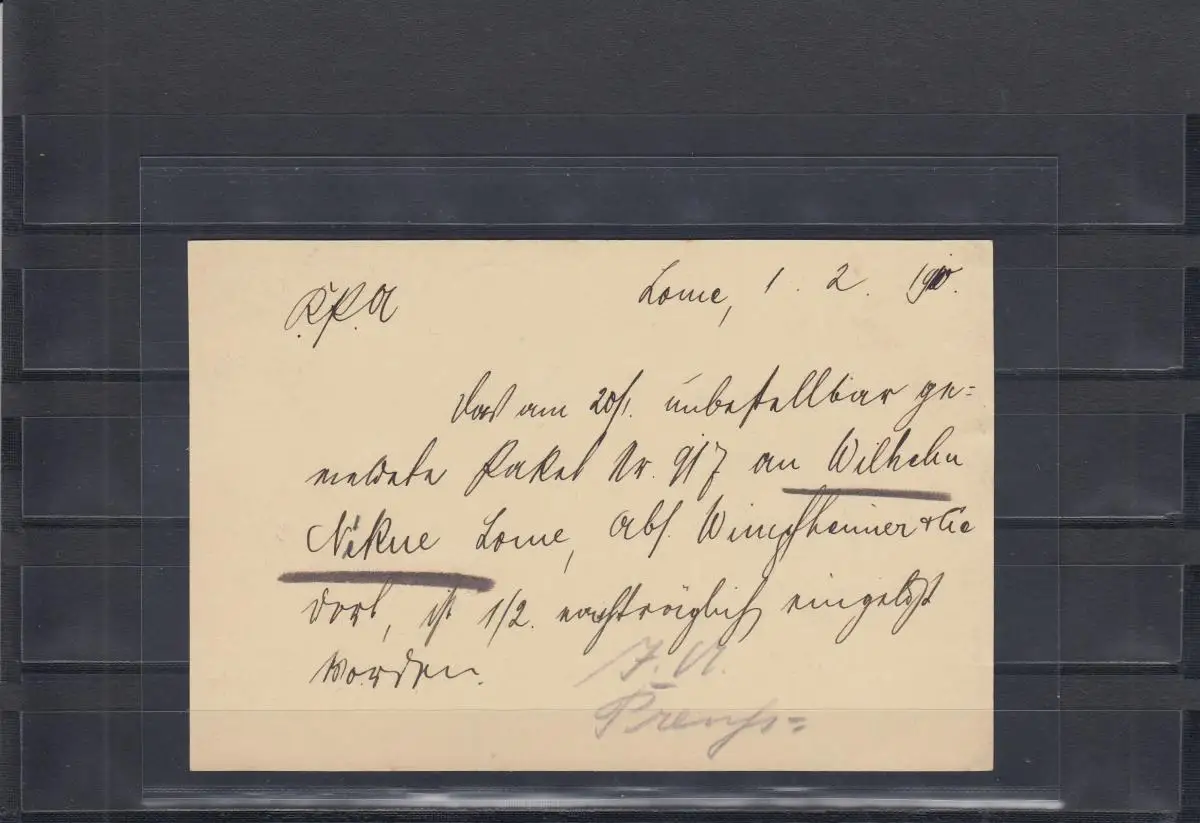 K.P.A Lome, 1. 2. 
Das am 20/1. unbestellbar ge=
meldete Paket Nr. 917 an Wilhelm
Lome, Abs. Wimpfheimer & Cie
dort, ist 1/2. nachträglich eingelöst
worden.
I. A.
Preuß=